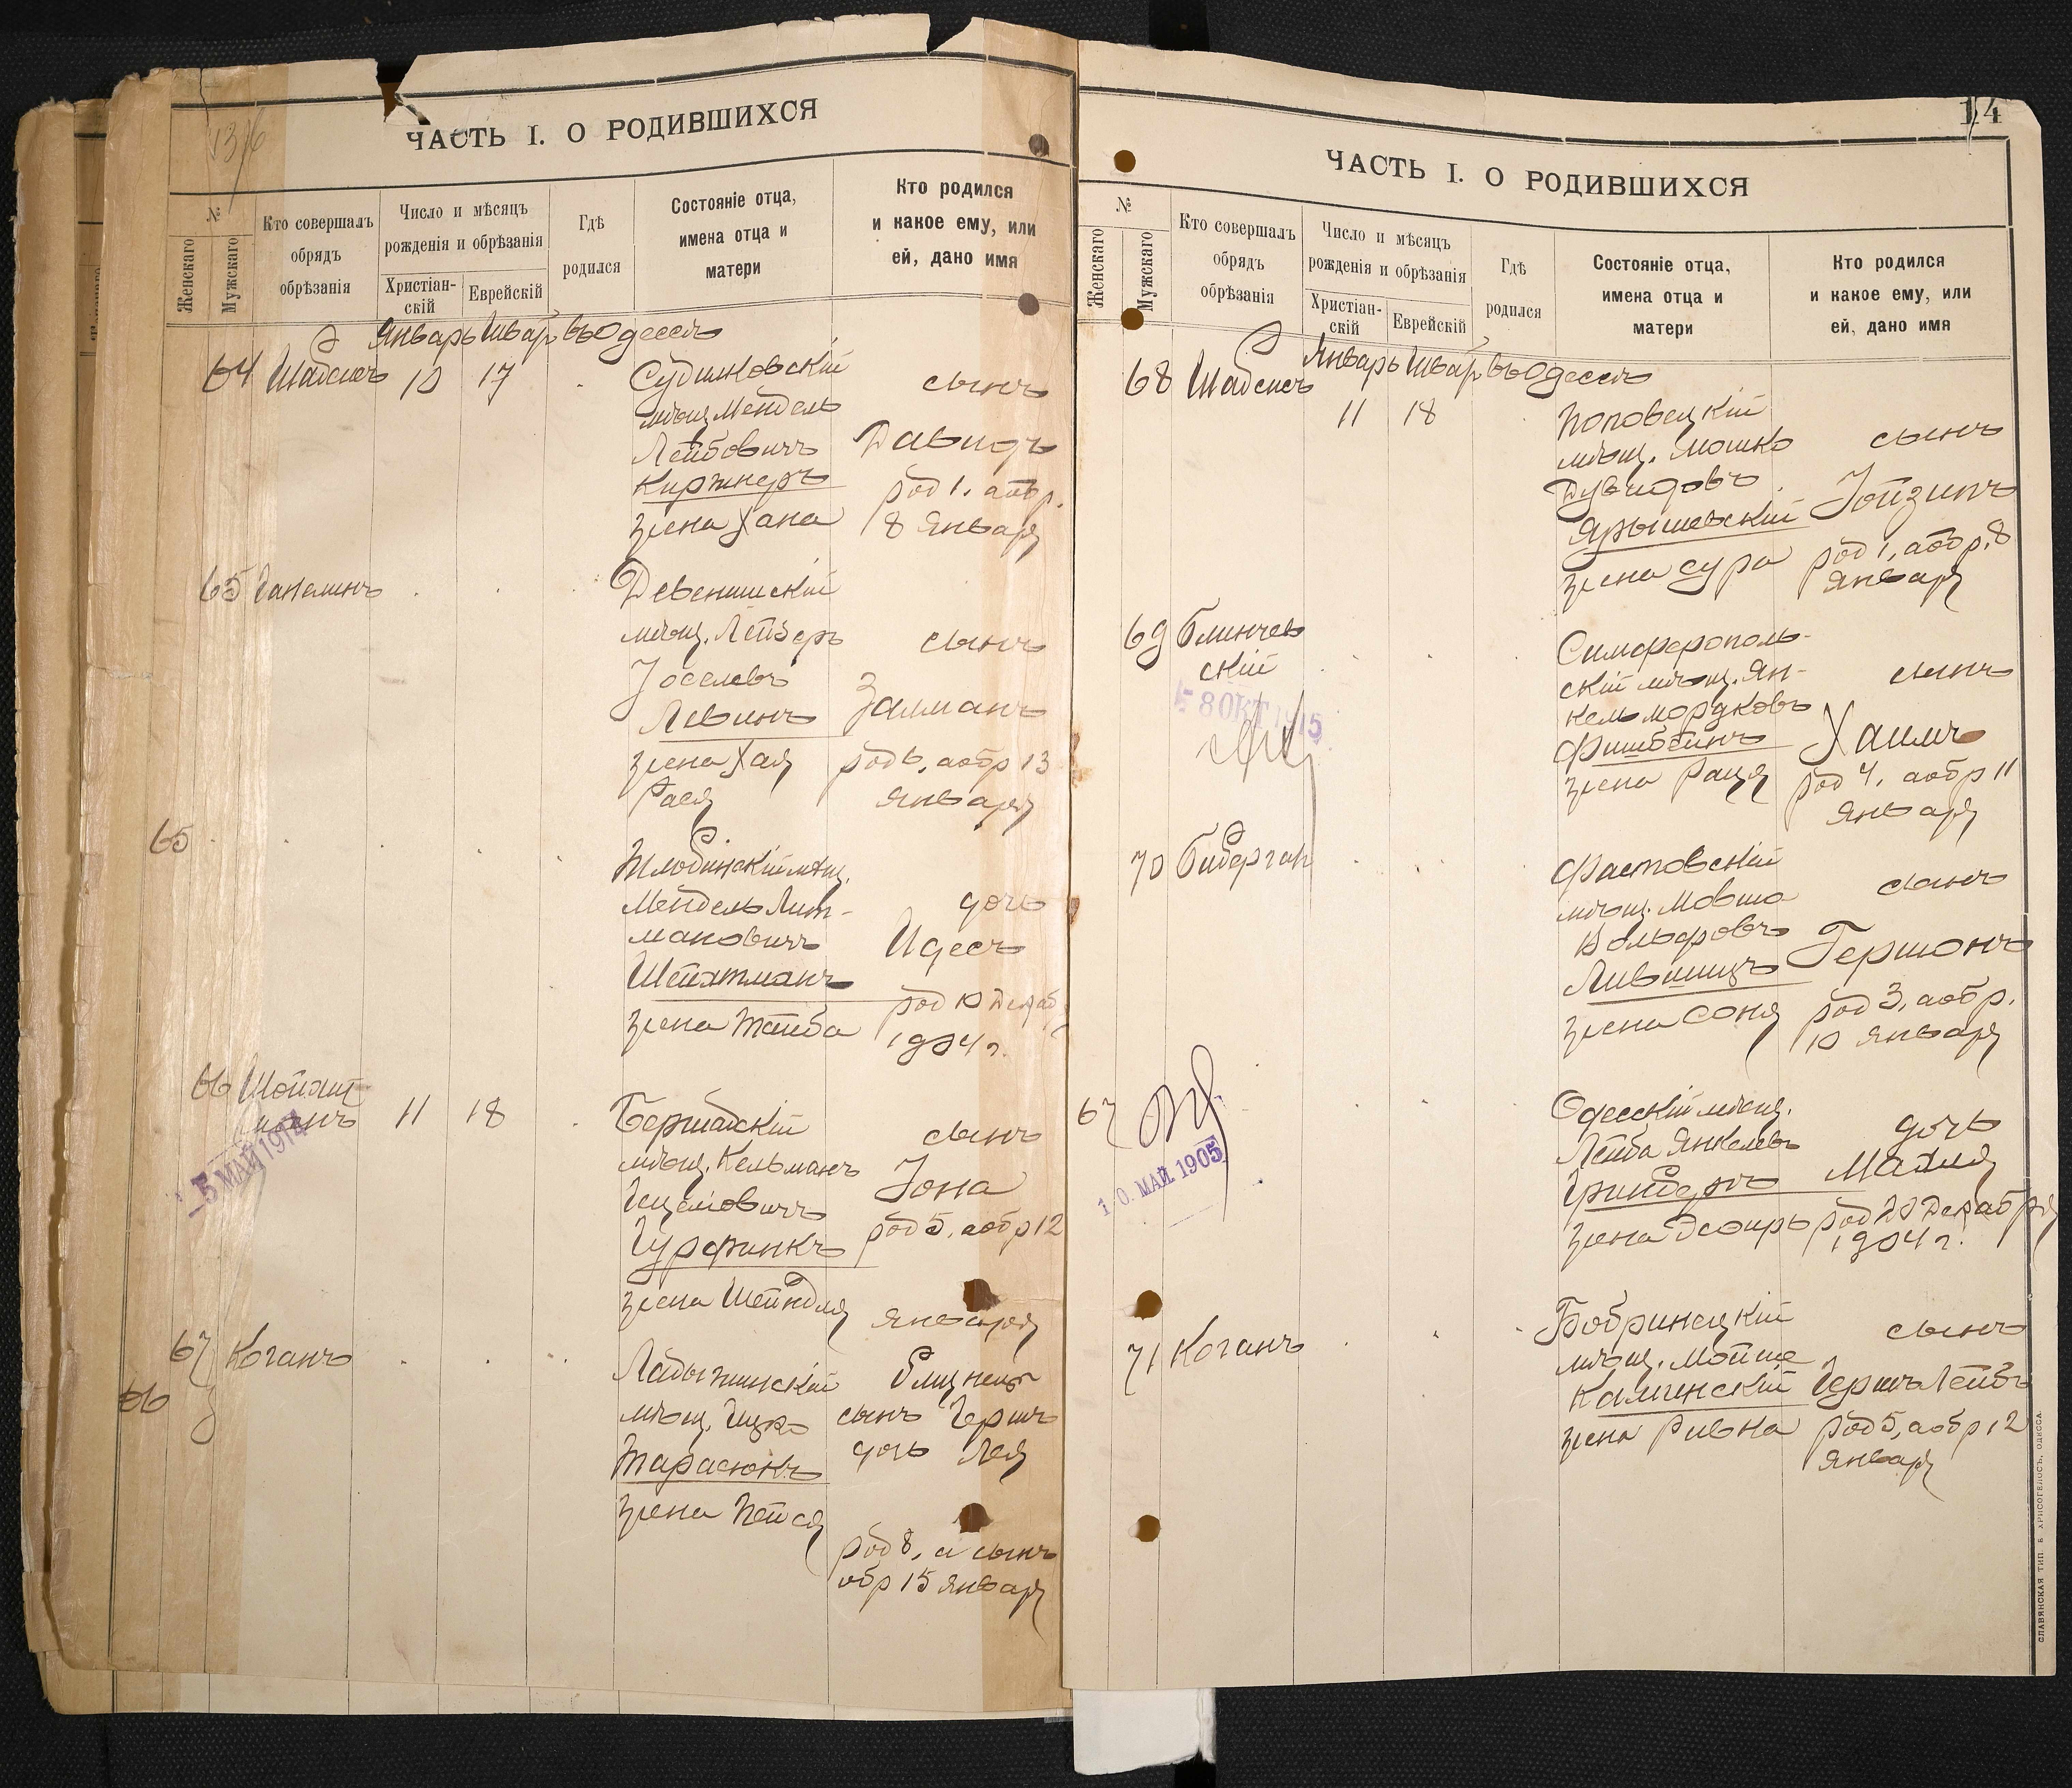 ЧАСТЬ I. О РОДИВШИХСЯ
№
Женскаго
Мужскаго
Кто совершалъ
обрядъ
обрѣзанія
Число и мѣсяцъ
рожденія и обрѣзанія
Христіан-
скій
Еврейскій
Гдѣ
родился
Состояніе отца,
имена отца и
матери
Кто родился
и какое ему, или
ей, дано имя
Январь Шват въ Одессѣ
64 Шабсисъ 10 17
Судилковскій
мѣщ. Мендель
Лейбовичъ
Киржнеръ
жена Хана
сынъ
Давидъ
род 1. а обр.
8 Января
65 Ганелинъ
Девенишскій
мѣщ. Лейзеръ
Іоселевъ
Левинъ
жена Хая
Рася
сынъ
Залманъ
род 6, а обр 13
января
65
Жлобинскій мѣщ.
Мендель Лит-
мановичъ
Шейхтманъ
жена Тайба
дочь
Идесъ
род 10 Декаб
1904 г.
66 Шойхет
манъ 11 18
5 МАЙ 1914
Бершадскій
мѣщ. Кельманъ
Ицковичъ
Гурфинкъ
жена Шейндля
сынъ
Іона
род 5, а обр 12
января
67 Коганъ
66
Ладыжинскій
мѣщ. Ицко
Тарасюкъ
жена Пейся
Близнецы
сынъ Гершъ
дочь Лея
род 8, а сынъ
обр 15 января
14
ЧАСТЬ I. О РОДИВШИХСЯ
№
Женскаго
Мужскаго
Кто совершалъ
обрядъ
обрѣзанія
Число и мѣсяцъ
рожденія и обрѣзанія
Христіан-
скій
Еврейскій
Гдѣ
родился
Состояніе отца,
имена отца и
матери
Кто родился
и какое ему, или
ей, дано имя
Январь Шват въ Одессѣ
68 Шабсисъ
11 18
Поповецкій
мѣщ. Мошко
Дувидовъ
Ярышевскій
жена Сура
сынъ
Іойзипъ
род 1, а обр. 8
января
69 Блинчев
скій
8 ОКТ 1915
Симферополь-
скій мѣщ. Ян-
кель Мордковъ
Фишбейнъ
жена Рация
сынъ
Хаимъ
род 4, а обр 11
января
70 Биберган
Фастовскій
мѣщ. Мовша
Вольфовъ
Лившицъ
жена Соня
сынъ
Гершонъ
род 3, а обр.
10 января
67
10. МАЙ 1905
Одесскій мѣщ.
Лейба Янкелевъ
Гринбергъ
жена Эсфирь
дочь
Махля
род 20 Декабря
1904 г.
71 Коганъ
Бобринецкій
мѣщ. Мойше
Каминскій
жена Ривка
сынъ
Гершъ Лейбъ
род 5, а обр 12
января
СЛАВЯНСКАЯ ТИП. Е. ХРИСОГЕЛОСЪ, ОДЕССА.